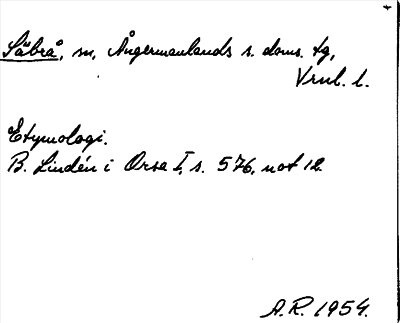 Säbrå, sn, Ångermanlands s. doms. tg,
Vrnl. l.
Etymologi.
B. Lindén i Orsa I, s. 576, not 12.
A.R. 1954.